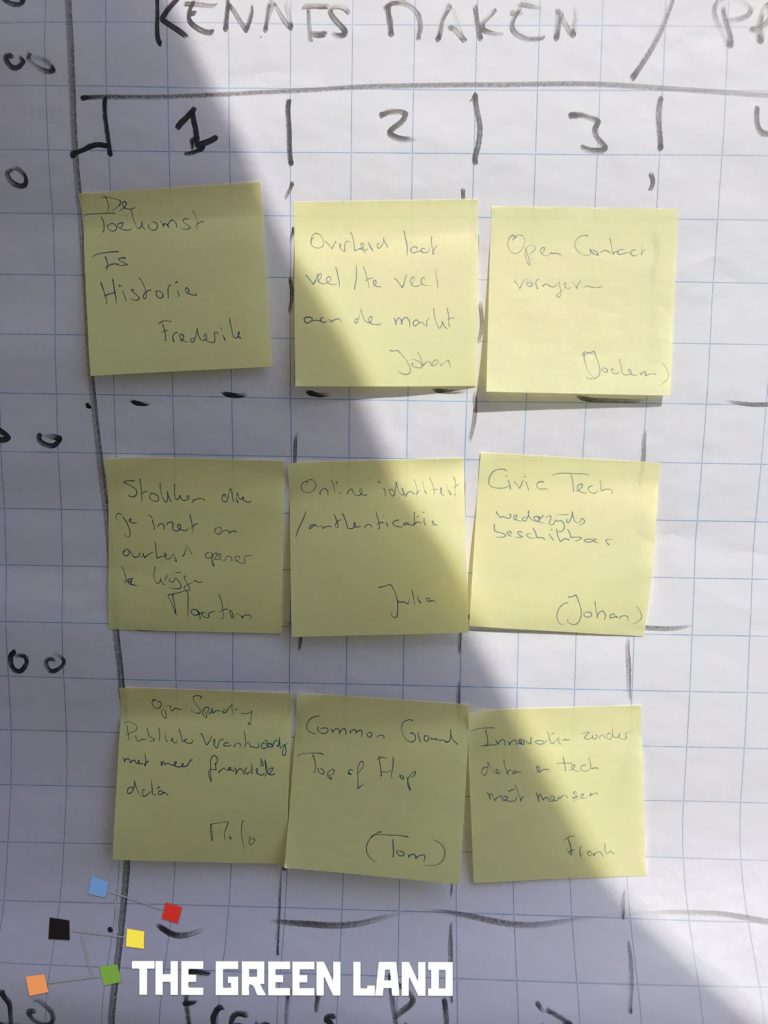 KENNIS MAKEN / PA
00
1 2 3 4
0
De
Toekomst
Is
Historie
Frederik
Overheid laat
veel / te veel
aan de markt
Johan
Open Contact
(Jochem)
00
Stokken die
je inzet om
overheid opener
te krijgen
Maarten
Online identiteit
/authenticatie
Julia
Civic Tech
wederzijds
beschikbaar
(Johan)
00
Open Spending
Publieke Verantwoording
met meer financiële
data
Milo
Common Ground
Top of Flop
(Tom)
Innovatie zonder
data en tech
mét mensen
Frank
THE GREEN LAND